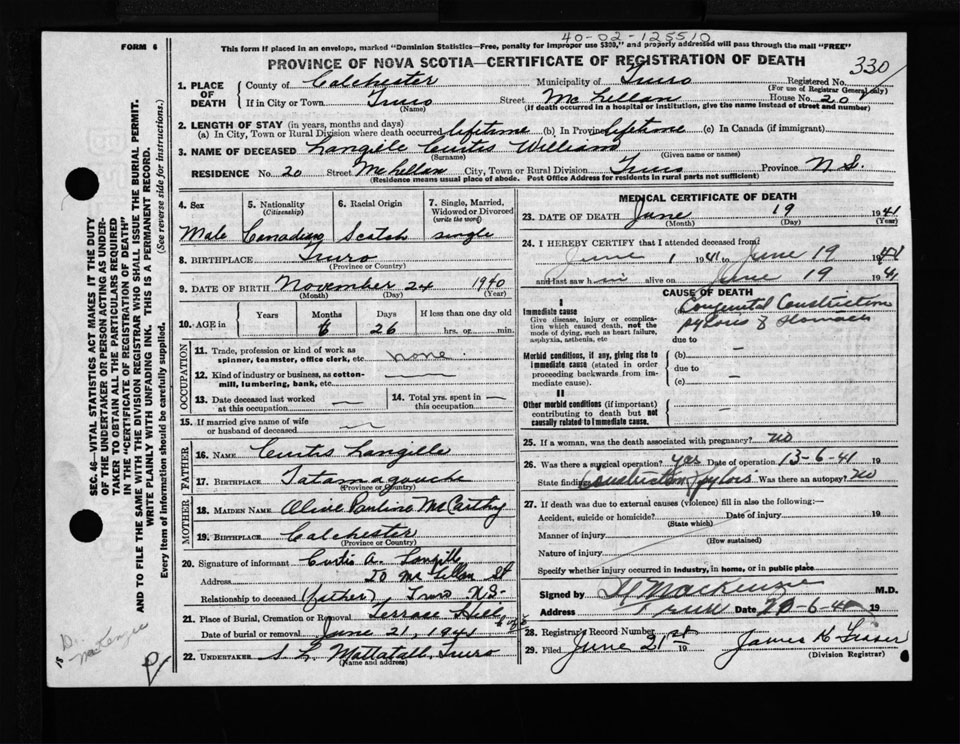 40-02-125510
FORM 6
This form if placed in an envelope, marked "Dominion Statistics—Free, penalty for improper use $300," and properly addressed will pass through the mail "FREE"
PROVINCE OF NOVA SCOTIA—CERTIFICATE OF REGISTRATION OF DEATH
330
1. PLACE OF DEATH
County of Colchester Municipality of Truro Registered No.
(For use of Registrar General only)
If in City or Town Truro Street McLellan House No. 20
(Name) (If death occurred in a hospital or institution, give the name instead of street and number)
2. LENGTH OF STAY (in years, months and days)
(a) In City, Town or Rural Division where death occurred lifetime (b) In Province lifetime (c) In Canada (if immigrant)
3. NAME OF DECEASED Langille Curtis William
(Surname) (Given name or names)
RESIDENCE No. 20 Street McLellan City, Town or Rural Division Truro Province N.S.
(Residence means usual place of abode. Post Office Address for residents in rural parts not sufficient)
4. Sex
Male
5. Nationality
(Citizenship)
Canadian
6. Racial Origin
Scotch
7. Single, Married, Widowed or Divorced
(write the word)
single
8. BIRTHPLACE Truro
(Province or Country)
9. DATE OF BIRTH November 24 1940
(Month) (Day) (Year)
10. AGE in Years Months Days If less than one day old
6 26 hrs. or min.
OCCUPATION
11. Trade, profession or kind of work as spinner, teamster, office clerk, etc. none
12. Kind of industry or business, as cotton-mill, lumbering, bank, etc.
13. Date deceased last worked at this occupation
14. Total yrs. spent in this occupation
15. If married give name of wife or husband of deceased
FATHER
16. NAME Curtis Langille
17. BIRTHPLACE Tatamagouche
(Province or Country)
MOTHER
18. MAIDEN NAME Olive Pauline McCarthy
19. BIRTHPLACE Colchester
(Province or Country)
20. Signature of informant Curtis A. Langille
Address 20 McLellan St
Relationship to deceased (father) Truro N.S.
21. Place of Burial, Cremation or Removal Terrace Hill
Date of burial or removal June 21, 1941
22. UNDERTAKER S. L. Mattatall, Truro
(Name and address)
MEDICAL CERTIFICATE OF DEATH
23. DATE OF DEATH June 19 1941
(Month) (Day) (Year)
24. I HEREBY CERTIFY that I attended deceased from
June 1 1941 to June 19 1941
and last saw him alive on June 19 1941
CAUSE OF DEATH
I
Immediate cause
Give disease, injury or complication which caused death, not the mode of dying, such as heart failure, asphyxia, asthenia, etc
Congenital Constriction
pylorus of Stomach
due to
Morbid conditions, if any, giving rise to immediate cause (stated in order proceeding backwards from immediate cause).
(b)
due to
(c)
II
Other morbid conditions (if important) contributing to death but not causally related to immediate cause.
25. If a woman, was the death associated with pregnancy? no
26. Was there a surgical operation? yes Date of operation 13-6-41 19
State findings Constriction Pyloris Was there an autopsy? no
27. If death was due to external causes (violence) fill in also the following:—
Accident, suicide or homicide? Date of injury 19
(State which)
Manner of injury
(How sustained)
Nature of injury
Specify whether injury occurred in industry, in home, or in public place
Signed by MacKenzie M.D.
Address Truro Date 19
28. Registrar's Record Number
29. Filed June 21st 19 James H Fraser
(Division Registrar)
SEC. 46—VITAL STATISTICS ACT MAKES IT THE DUTY
OF THE UNDERTAKER OR PERSON ACTING AS UNDER-
TAKER TO OBTAIN ALL THE PARTICULARS REQUIRED
IN THE "CERTIFICATE OF REGISTRATION OF DEATH"
AND TO FILE THE SAME WITH THE DIVISION REGISTRAR WHO SHALL ISSUE THE BURIAL PERMIT.
WRITE PLAINLY WITH UNFADING INK. THIS IS A PERMANENT RECORD.
Every item of information should be carefully supplied. (See reverse side for instructions.)
D.
MacKenzie